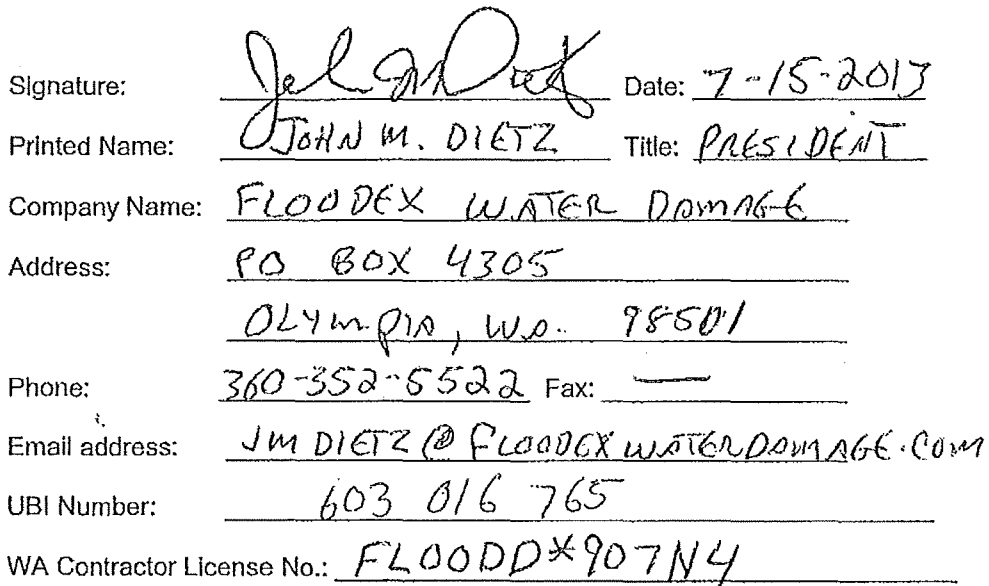 Signature: John M Dietz Date: 7-15-2013
Printed Name: JOHN M. DIETZ Title: PRESIDENT
Company Name: FLOODEX WATER DAMAGE
Address: PO BOX 4305
OLYMPIA, Wa. 98501
Phone: 360-352-5522 Fax: —
Email address: JMDIETZ@FLOODEXWATERDAMAGE.COM
UBI Number: 603 016 765
WA Contractor License No.: FLOODD*907N4